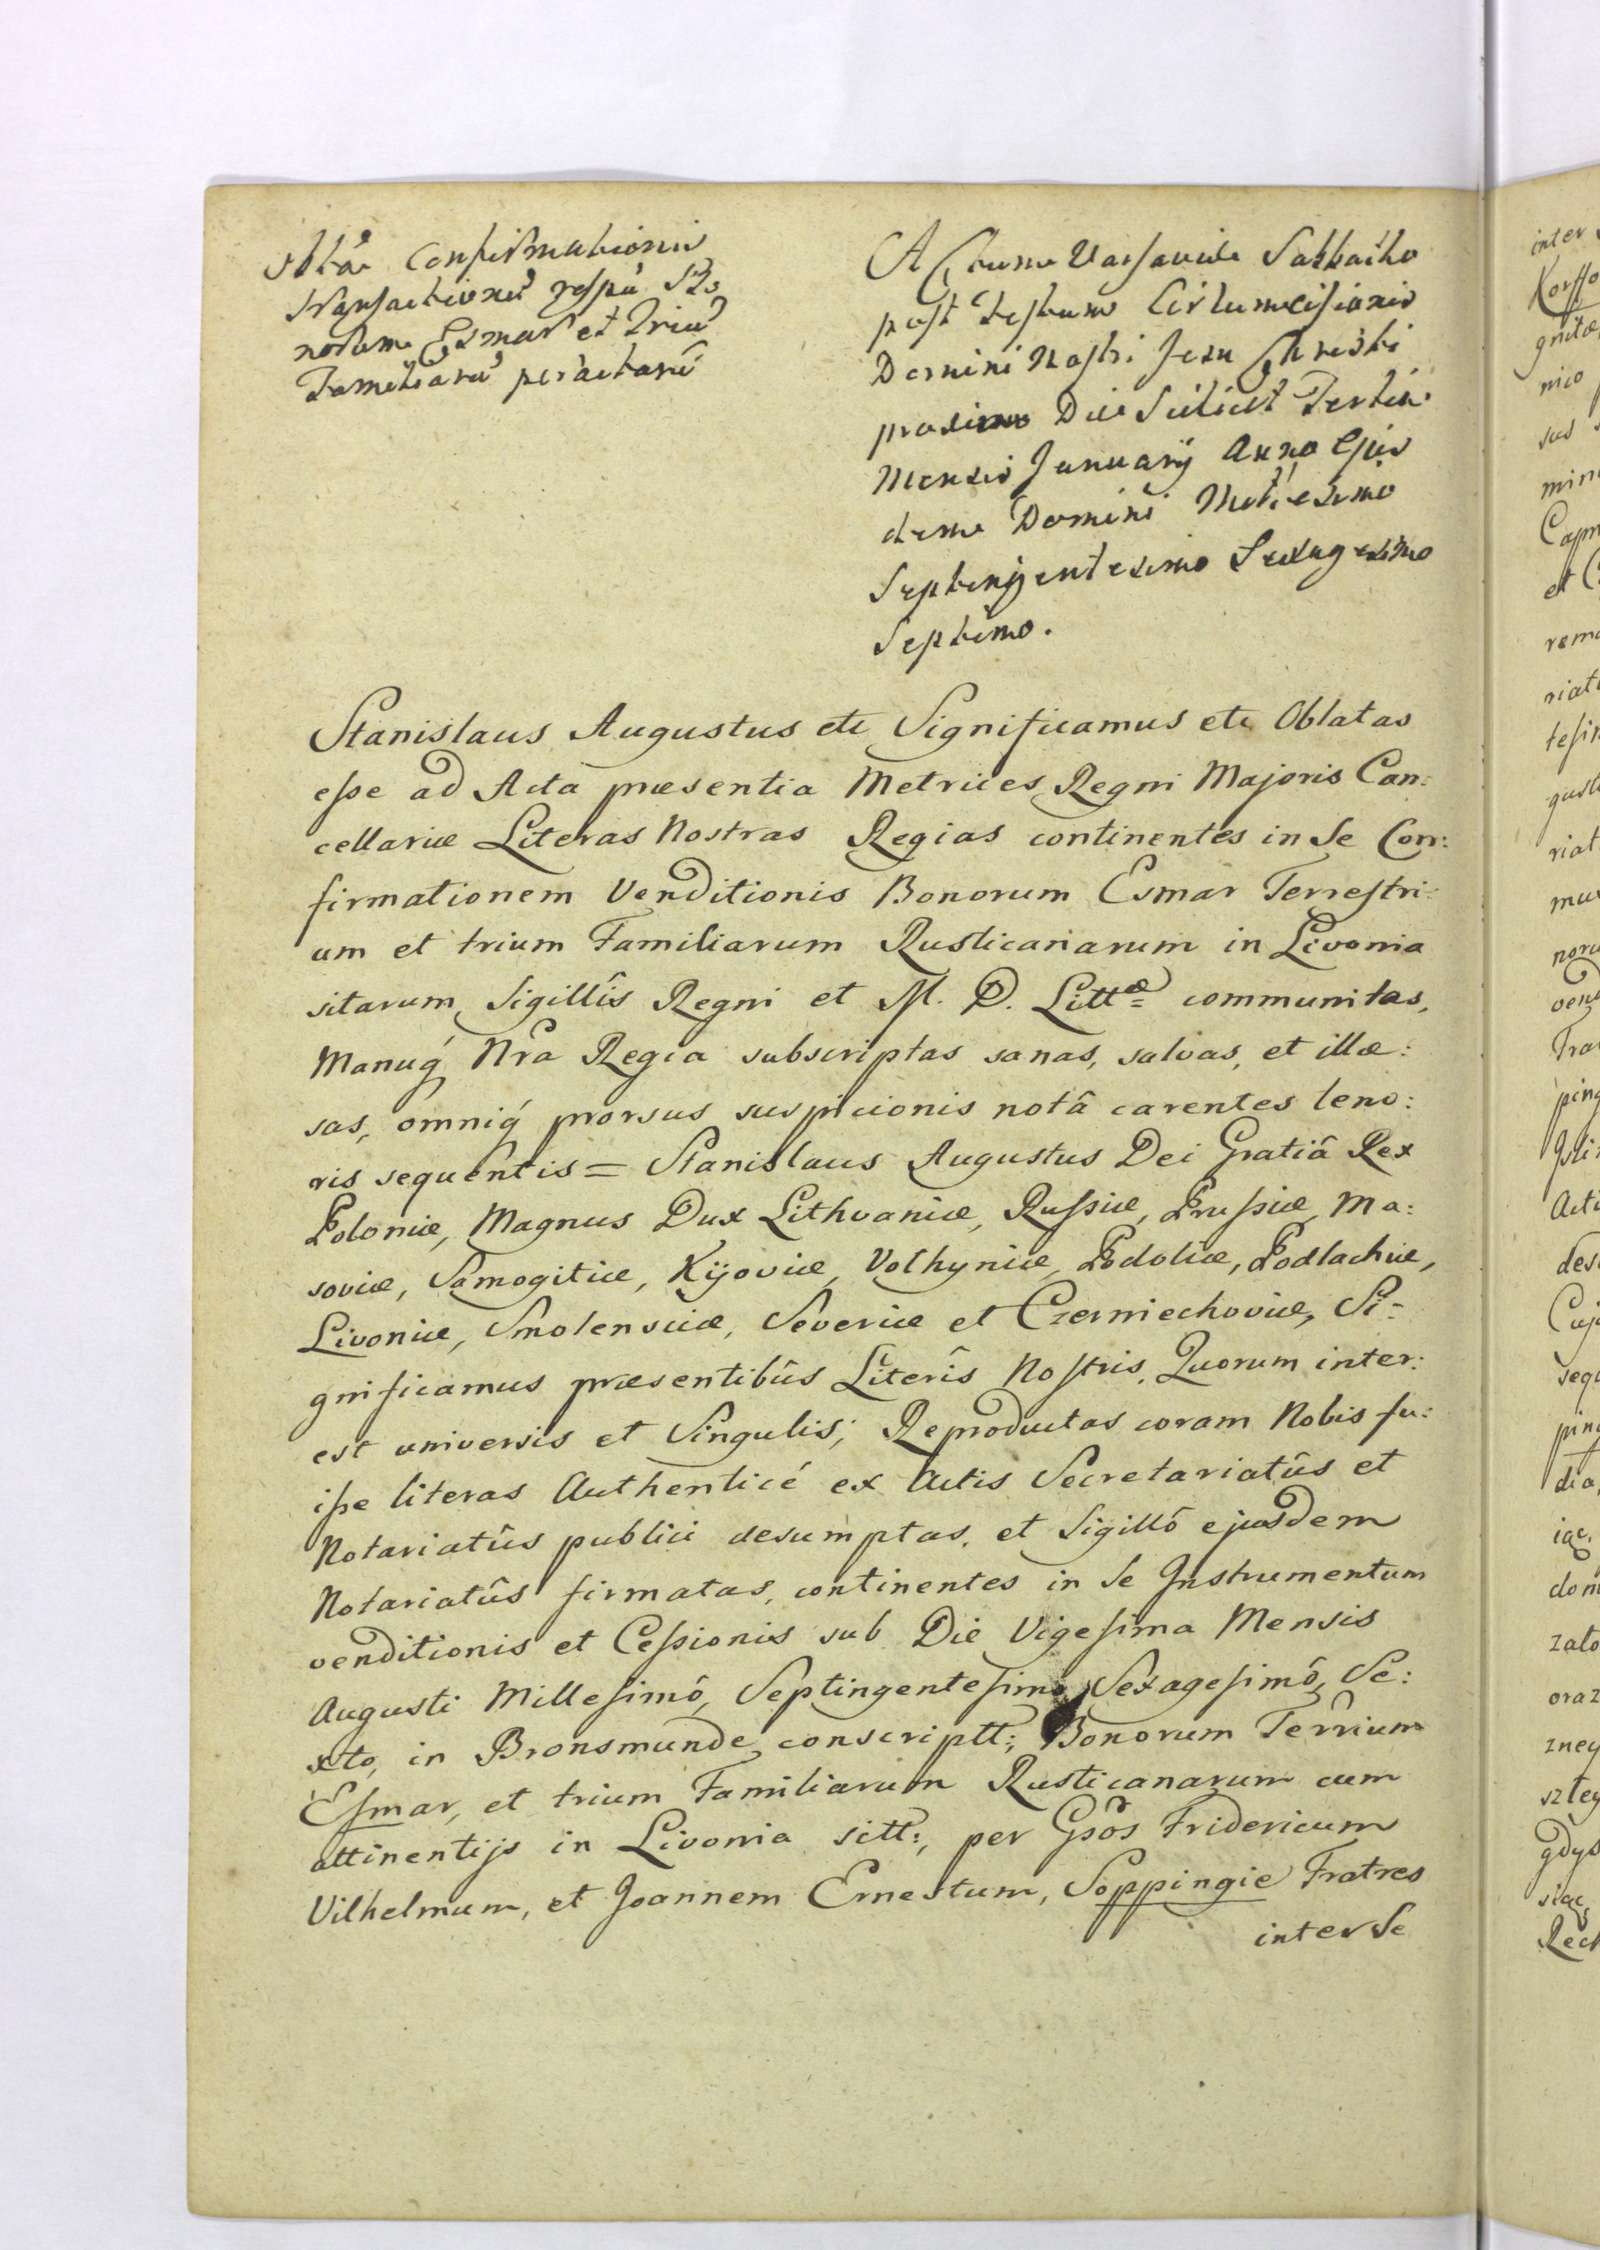 Oblāe Confirmationis
Transactionū respū Bo
norum Esmar et Triū
Familiarū peractarū
Actum Varsaviæ Sabbatho
post Festum Circumcisionis
Domini Nostri Jesu Christi
proximo Die Scilicet Tertia
Mensis Januarij Anno Ejus
dem Domini Millesimo
Septingentesimo Sexagesimo
Septimo.
Stanislaus Augustus etc Significamus etc Oblatas
eſse ad Acta præsentia Metrices Regni Majoris Can:
cellariæ Literas Nostras Regias continentes in Se Con:
firmationem Venditionis Bonorum Esmar Terreſtri:
um et trium Familiarum Rusticanarum in Livonia
sitarum, Sigillîs Regni et M. D. Littæ communitas,
Manuq́ Nr̃a Regia subscriptas sanas, salvas, et illæ:
sas, omniq́ prorsus suspicionis notâ carentes teno:
ris sequentis = Stanislaus Augustus Dei Gratiâ Rex
Poloniæ, Magnus Dux Lithvaniæ, Ruſsiæ, Pruſsiæ, Ma:
soviæ, Samogitiæ, Kijoviæ, Volhyniæ, Podoliæ, Podlachiæ,
Livoniæ, Smolensciæ, Severiæ et Czerniechoviæ, Si=
gnificamus præsentibûs Literîs Noſtris, Quorum inter:
est universis et Singulis; Reproductas coram Nobis fu:
iſse literas Authenticé ex Actis Secretariatûs et
Notariatûs publici desumptas, et Sigillô ejusdem
Notariatûs firmatas, continentes in Se Instrumentum
venditionis et Ceſsionis sub Die Vigeſima Mensis
Augusti Milleſimô, Septingenteſimo Sexageſimô, Se:
xto, in Bronsmunde conscriptt; Bonorum Terr̃ium
Eſmar, et trium Familiarum Rusticanarum cum
attinentijs in Livonia sitt:, per Gsos Fridericum
Vilhelmum, et Joannem Ernestum, Soppingie Fratres
inter Se
inter
Korffo
nico
sus
Capn
et
rem
riat
gust
riat
ping
Acti
des
Cuj
sequ
pin
dia,
dom
zato
oraz
zney
gdys